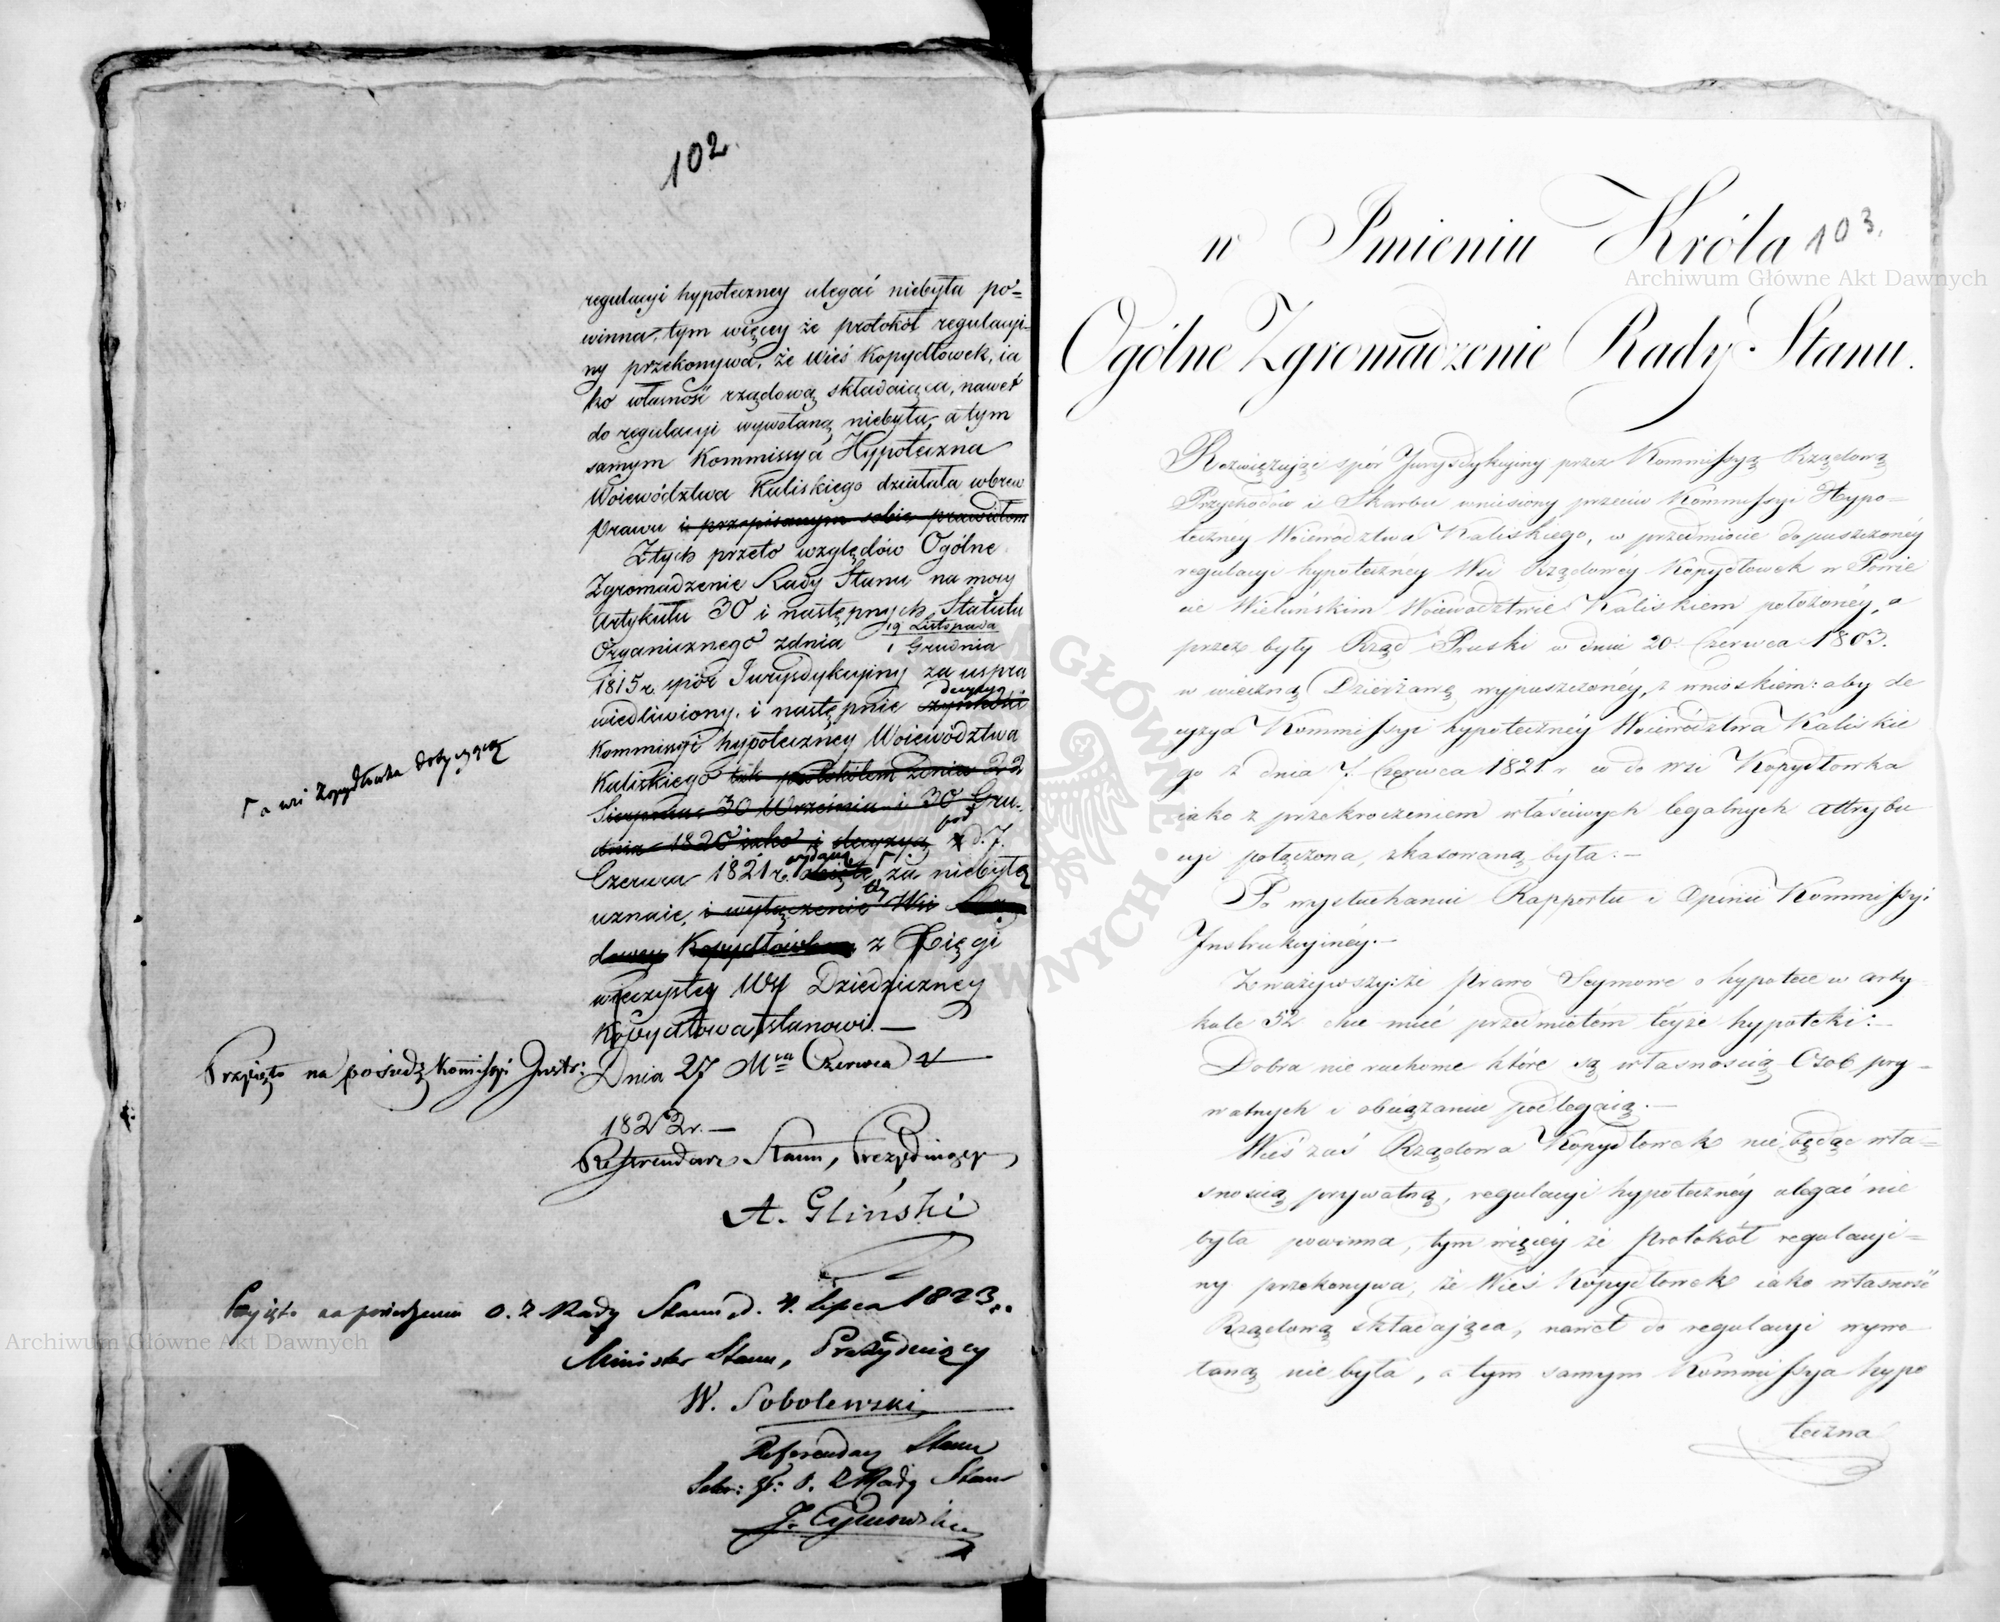 102.
regulacyi hypoteczney ulegać niebyła po=
winna, tym więcey że protokół regulacyi=
ny przekonywa, że Wieś Kopydłówek, ia
ko własność rządową składaiąca, nawet
do regulacyi wywołaną niebyła, a tym
samym Kommissya Hypoteczna
Woiewództwa Kaliskiego działała wbrew
Prawu i przepisanym sobie prawidłom
Z tych przeto względów Ogólne
Zgromadzenie Rady Stanu na mocy
Artykułu 30 i następnych Statutu
Organicznego zdnia 19 Listopada
1 Grudnia
1815 r. spór Jurysdykcyiny za uspra
wiedliwiony, i następnie czynności
decyzyą
Kommissyi hypoteczney Woiewództwa
Kaliskiego tak protokółem zdnia 22
Sierpnia 30 Września i 30 Gru-
dnia 1820 iako i decyzyą z d. 7.
pod
Czerwca 1821 r. wydaną Γ za niebyłą
Γ a wsi Kopydłówka dotyczącą
uznaie, i wyłączenie tey Wsi
dowey Kopydłówka z Xięgi
wieczystey Wsi Dziedziczney
Kopydłowa stanowi. —
Przyięto na posiedz. Kommissyi Instr: Dnia 27 Mca Czerwca
1822 r. —
Referendarz Stanu, Prezyduiący
A. Gliński
Przyięto na posiedzeniu O. Z. Rady Stanu d. 4. Lipca 1823.
Minister Stanu, Prezyduiący
W. Sobolewski
Referendarz Stanu
Sekr: O. Z. Rady Stanu
103.
w Imieniu Króla
Ogólne Zgromadzenie Rady Stanu.
Rozwiązuiąc spór Jurysdykcyiny przez Kommissyą Rządową
Przychodów i Skarbu wniesiony przeciw Kommissyi Hypo=
teczney Woiewództwa Kaliskiego, w przedmiocie dopuszczonéy
regulacyi hypoteczney Wsi Rządowey Kopydłowek w Powie
cie Wieluńskim Woiewództwie Kaliskiem położonéy, a
przez były Rząd Pruski w dniu 20. Czerwca 1803.
w wieczną Dzierżawę wypuszczonéy, z wnioskiem: aby de
cyzya Kommissyi hypotecznéy Woiewództwa Kaliskie
go z dnia 7. Czerwca 1821 r. co do wsi Kopydłowka
iako z przekroczeniem właściwych legalnych attrybu
cyi połączona, skasowaną była. —
Po wysłuchaniu Rapportu i Opinii Kommissyi
Instrukcyinéy. —
Zważywszy: że Prawo Seymowe o hypotece w arty
kule 52 chce mieć przedmiotem téyże hypoteki: —
Dobra nieruchome które są własnością Osób pry=
watnych i obciążaniu podlegaią. —
Wieś zaś Rządowa Kopydłowek nie będąc wła=
snością prywatną, regulacyi hypotecznéy ulegać nie
była powinna, tym więcéy że protokół regulacyi=
ny przekonywa, że Wieś Kopydłowek iako własność
Rządową składająca, nawet do regulacyi wywo=
łaną nie była, a tym samym Kommissya hypo
teczna
Archiwum Główne Akt Dawnych
Archiwum Główne Akt Dawnych